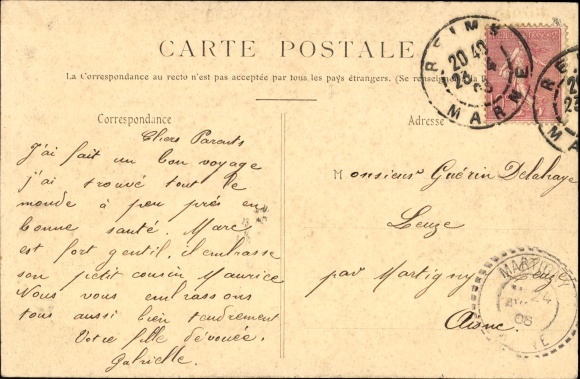 CARTE POSTALE
La Correspondance au recto n'est pas acceptée par tous les pays étrangers. (Se
Correspondance
Adresse
Chers Parents
J'ai fait un bon voyage
j'ai trouvé tout le
monde à peu près en
bonne santé. Marc
est fort gentil, il embrasse
son petit cousin Maurice
Nous vous embrassons
tous aussi bien tendrement
Votre fille dévouée.
Gabrielle.
Monsieur Guérin Delahaye
Leuze
par Martigny
Aisne.
REIMS
20 40
MARNE
24